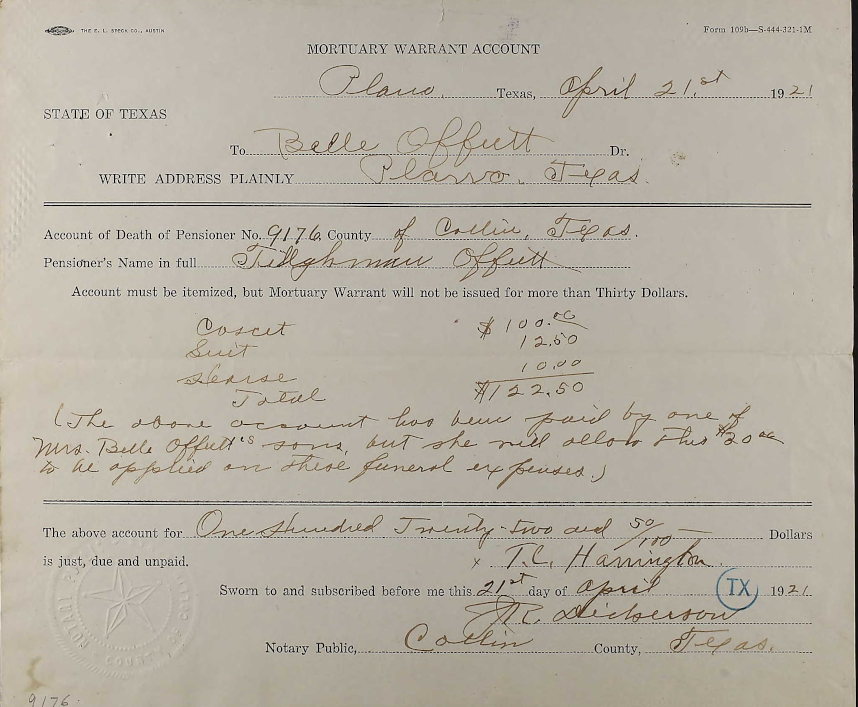 THE E. L. STECK CO., AUSTIN
Form 109b—S-444-321-1M
MORTUARY WARRANT ACCOUNT
Plano, Texas, April 21.st 1921
STATE OF TEXAS
To Belle Offutt Dr.
WRITE ADDRESS PLAINLY Plano, Texas.
Account of Death of Pensioner No. 9176. County of Collin, Texas.
Pensioner's Name in full Tilghman Offutt
Account must be itemized, but Mortuary Warrant will not be issued for more than Thirty Dollars.
Coscet $100.00
Suit 12.50
Hearse 10.00
Total $122.50
(The above account has been paid by one of
Mrs. Belle Offutt's sons, but she will allow this $30.00
to be applied on these funeral expenses)
The above account for One Hundred Twenty-two and 50/100 Dollars
is just, due and unpaid. x T.C. Harrington
Sworn to and subscribed before me this 21st day of April 1921
TX
J.R. Dickerson
Notary Public, Collin County, Texas.
9176.